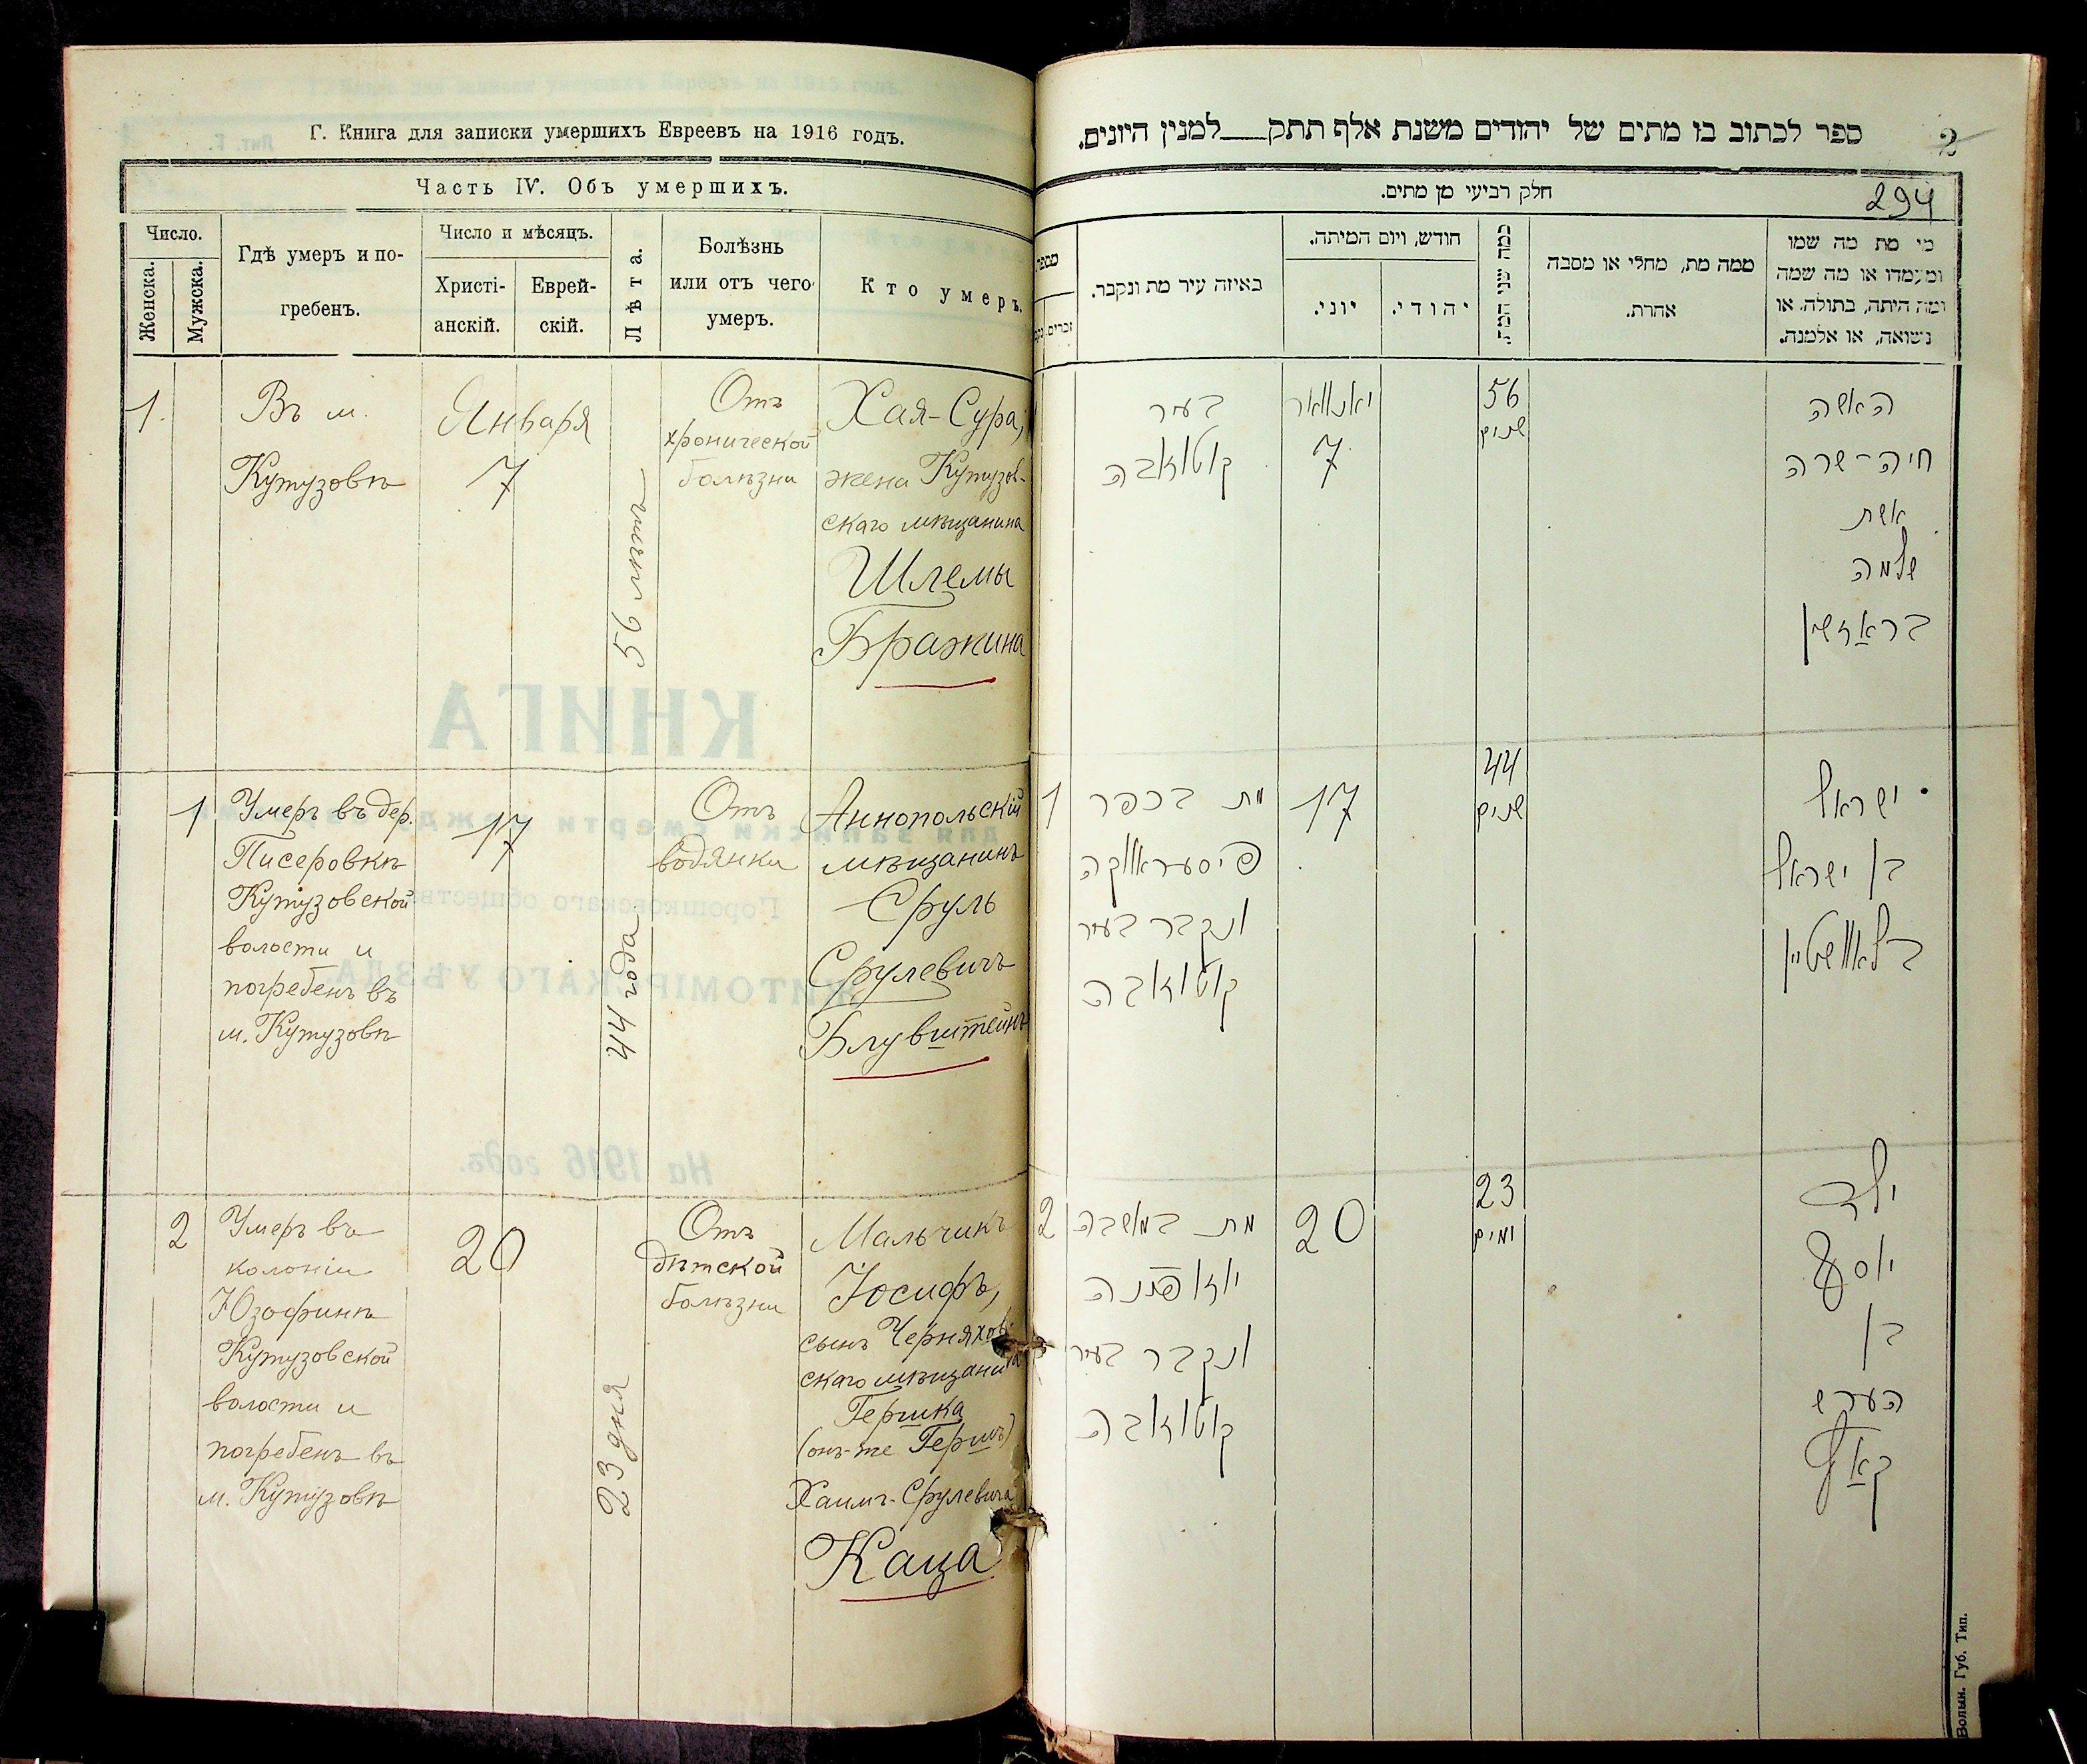 Г. Книга для записки умершихъ Евреевъ на 1916 годъ.
Часть IV. Объ умершихъ.
Число.
Женска.
Мужска.
Гдѣ умеръ и по-
гребенъ.
Число и мѣсяцъ.
Христі-
анскій.
Еврей-
скій.
Лѣта.
Болѣзнь
или отъ чего
умеръ.
Кто умеръ.
1.
Въ м.
Кутузовѣ
Января
7
56 лѣтъ
Отъ
хронической
болѣзни
Хая-Сура,
жена Кутузов-
скаго мѣщанина
Шлемы
Бражина
1
Умеръ въ дер.
Писеровкѣ
Кутузовской
волости и
погребенъ въ
м. Кутузовѣ
17
44 года
Отъ
водянки
Аннопольскій
мѣщанинъ
Сруль
Срулевичъ
Блувштейнъ
2
Умеръ въ
колоніи
Юзофинѣ
Кутузовской
волости и
погребенъ въ
м. Кутузовѣ
20
23 дня
Отъ
дѣтской
болѣзни
Мальчикъ
Іосифъ,
сынъ Черняхов-
скаго мѣщанина
Гершка
(онъ-же Гершъ)
Хаимъ-Срулевича
Каца
КНИГА
Горошковскаго обществ
ЖИТОМІРСКАГО УѢЗДА
На 1916 годъ.
ספר לכתוב בו מתים של יהודים משנת אלף תתק למנין היונים.
2
294
חלק רביעי מן מתים.
מי מת מה שמו
ומעמדו או מה שמה
ומה היתה, בתולה, או
נשואה, או אלמנה.
ממה מת, מחלי או מסבה
אחרת.
כמה שני המת
חודש, ויום המיתה.
יהודי.
יוני.
באיזה עיר מת ונקבר.
האשה
חיה-שרה
אשת
שלמה
בראזשין
56
שנים
יאנוואר
7
בעיר
קוטוזאבה
ישראל
בן ישראל
בלאוושטיין
44
שנים
17
מת בכפר
פיסעראווקה
ונקבר בעיר
קוטוזאבה
1
ילד
יוסף
בן
הערש
קאץ
23
ימים
20
מת במושבה
ונקבר בעיר
קוטוזאבה
2
Волын. Губ. Тип.